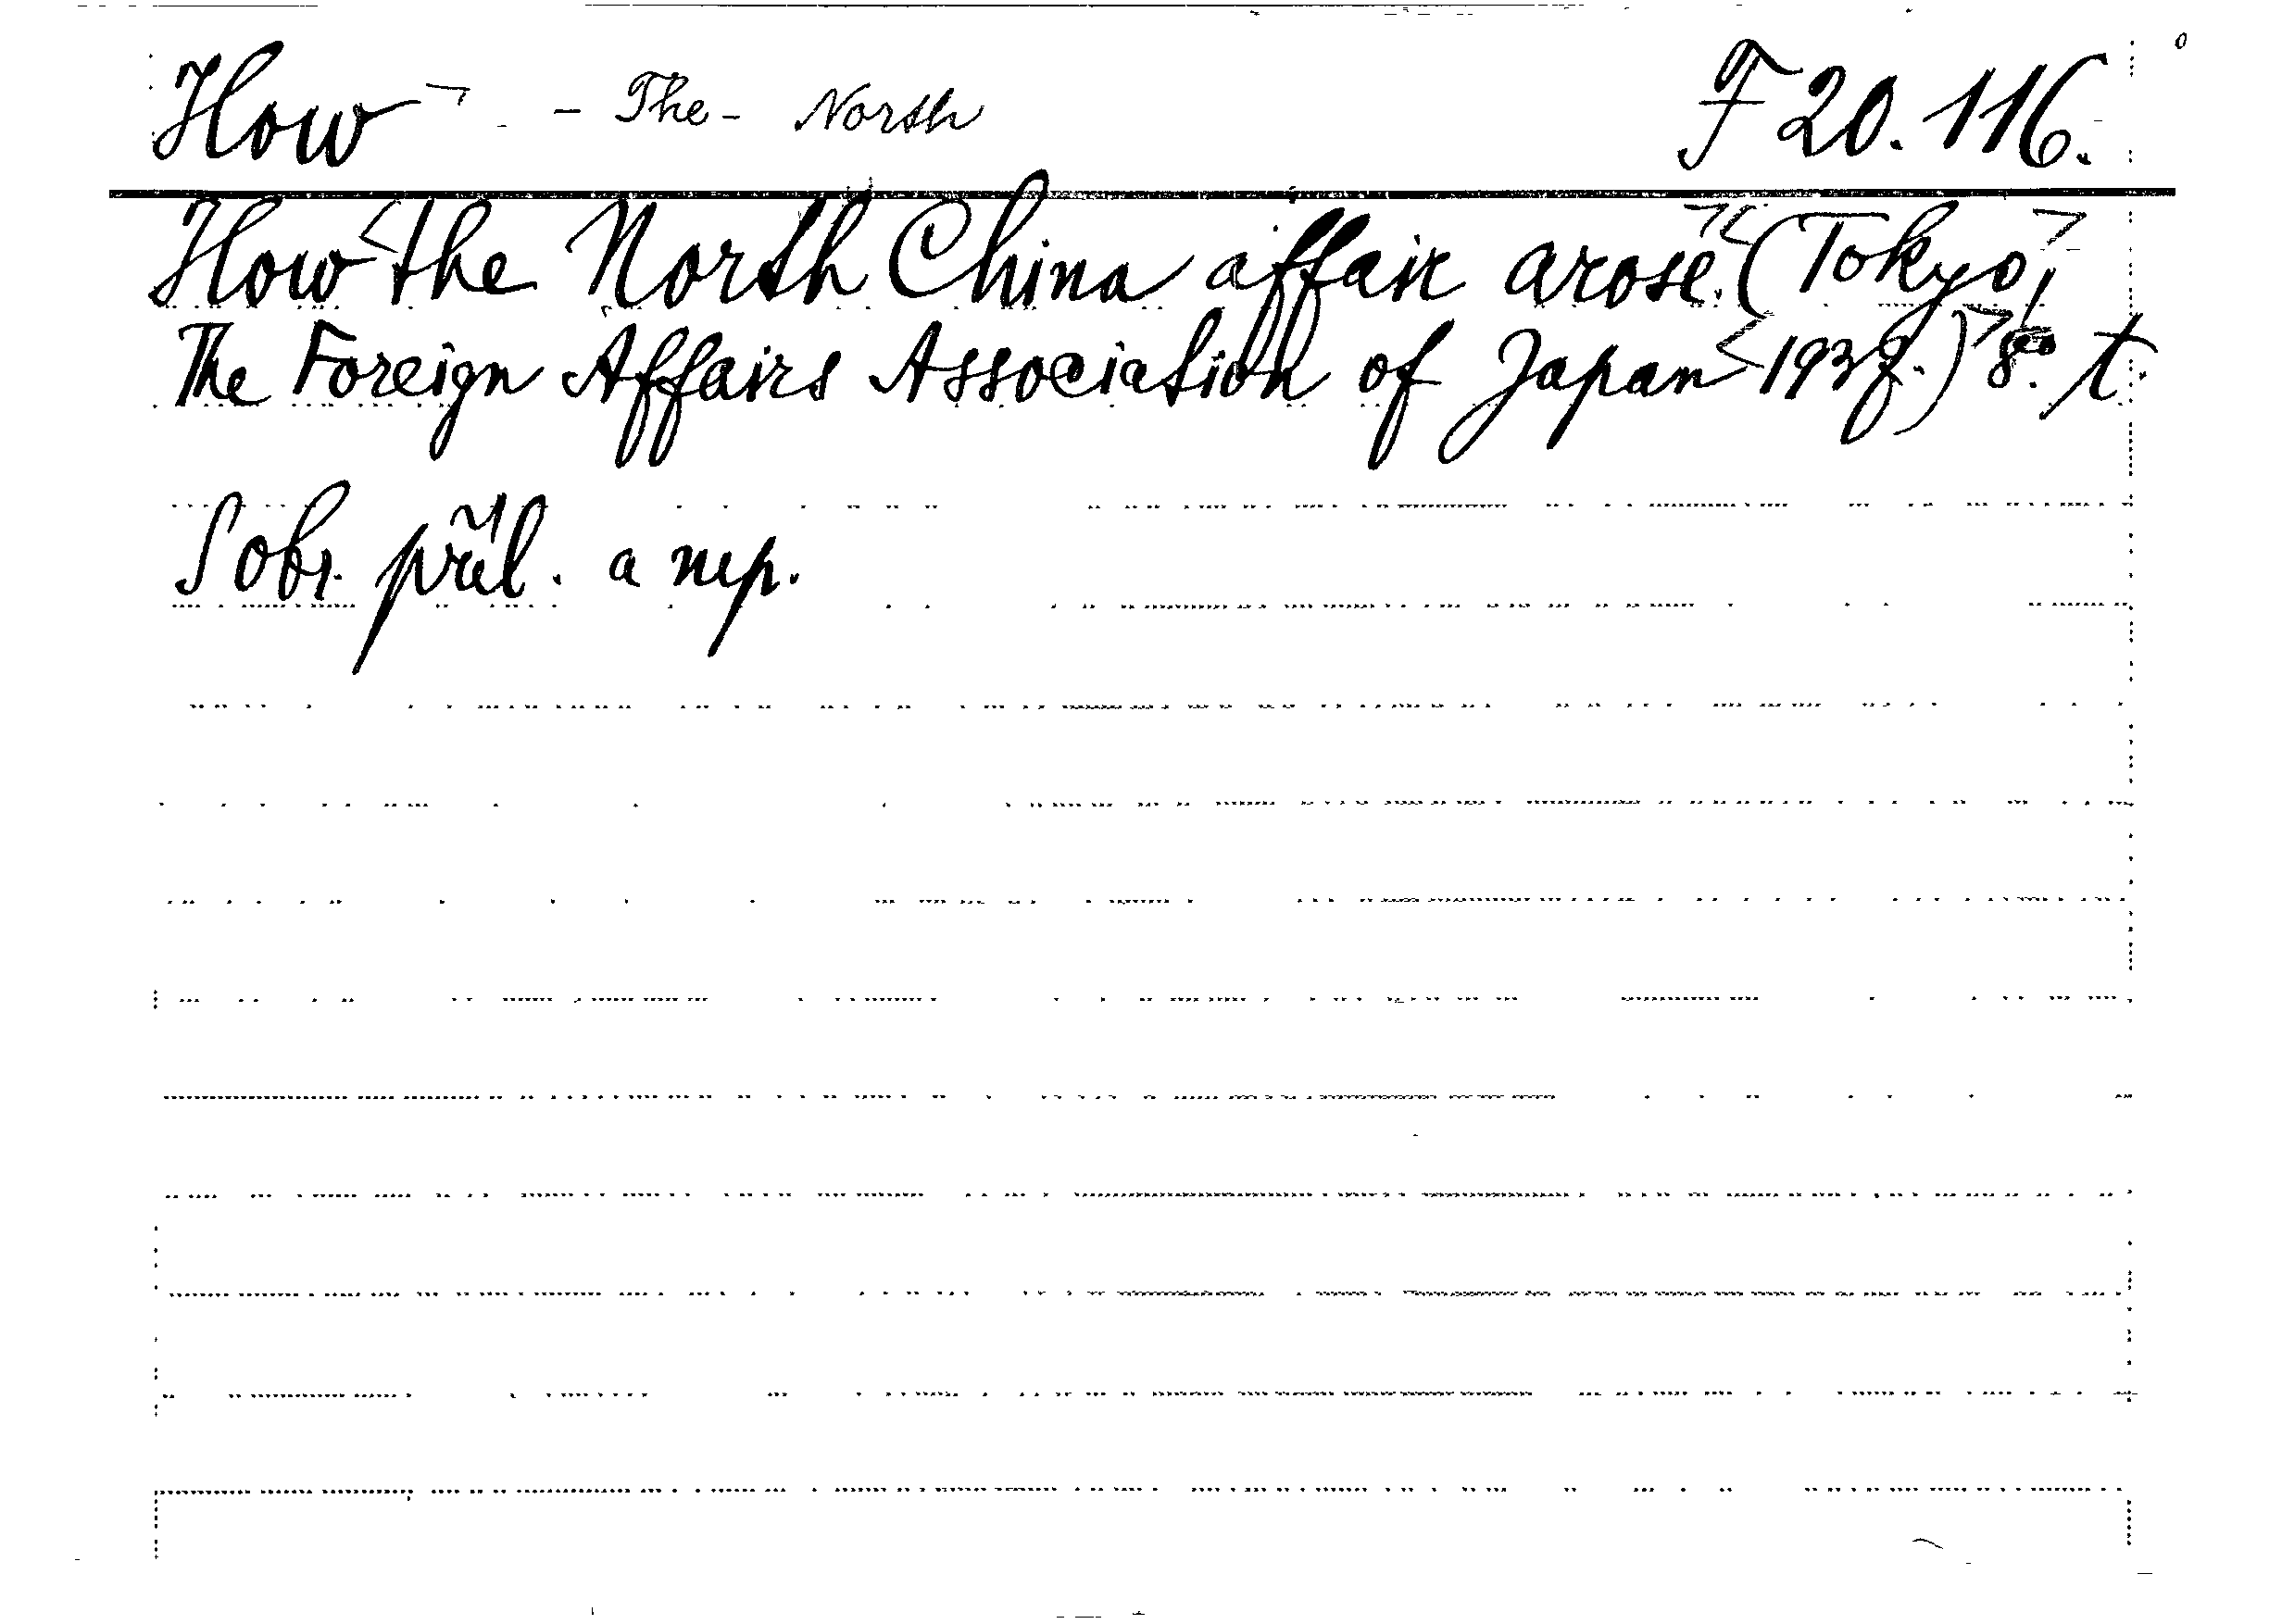 How - The - North F 20.116.
How the North China affair arose. (Tokyo,
The Foreign Affairs Association of Japan 1937.) 8° t.
S obr. příl. a nep.